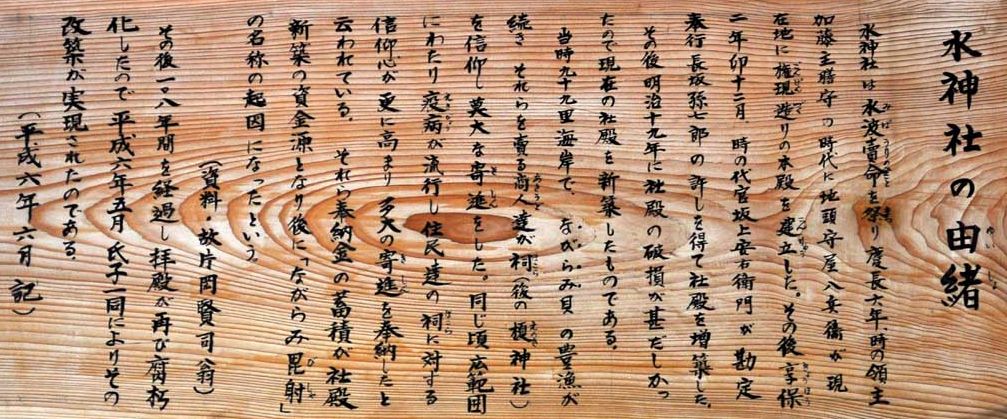 水神社の由緒
水神社は水波賣命を祭り慶長六年、時の領主
加藤主膳守の時代に地頭守屋八兵衛が現
在地に権現造りの本殿を建立した。その後享保
二年卯十二月、時の代官坂上安右衛門が勘定
奉行長坂弥七郎の許しを得て社殿を増築した。
その後明治十九年に社殿の破損が甚だしかっ
たので現在の社殿を新築したものである。
当時九十九里海岸で、ながらみ貝の豊漁が
続き それらを賣る商人達が祠(後の榎神社)
を信仰し莫大な寄進をした。同じ頃広範囲
にわたり疫病が流行し住民達の祠に対する
信仰心が更に高まり多大の寄進を奉納したと
云われている。 それら奉納金の蓄積が社殿
新築の資金源となり後に「ながらみ毘射」
の名称の起因になったという。
(資料・故片岡賢司翁)
その後一〇八年間を経過し拝殿が再び腐朽
化したので平成六年五月氏子一同によりその
改築が実現されたのである。
(平成六年六月 記)